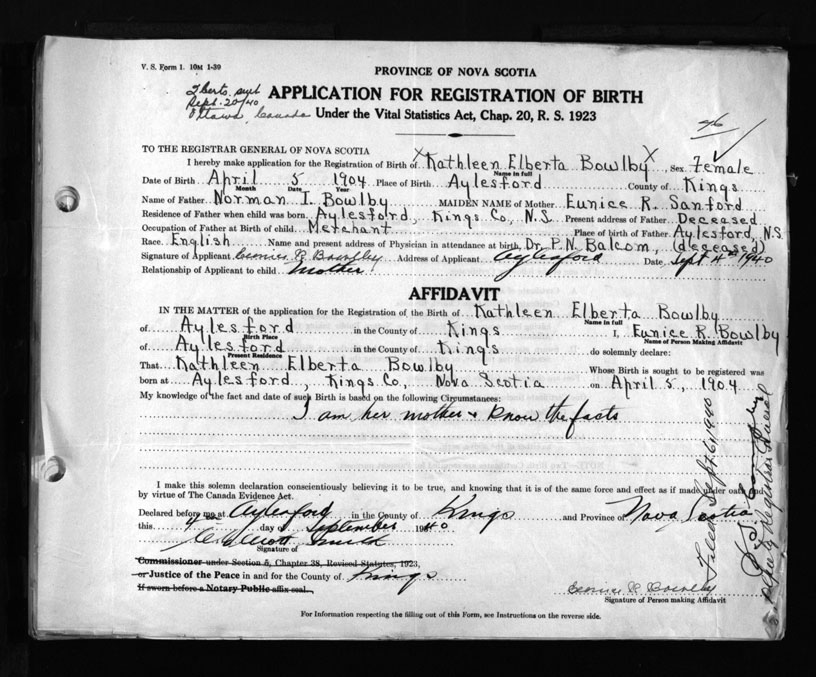 V. S. Form 1. 10M 1-39
PROVINCE OF NOVA SCOTIA
Sept. 20/40
Ottawa, Canada
APPLICATION FOR REGISTRATION OF BIRTH
Under the Vital Statistics Act, Chap. 20, R. S. 1923
46
TO THE REGISTRAR GENERAL OF NOVA SCOTIA
I hereby make application for the Registration of Birth of X Kathleen Elberta Bowlby X Sex Female
Name in full
Date of Birth April 5 1904 Place of Birth Aylesford County of Kings
Month Date Year
Name of Father Norman I. Bowlby MAIDEN NAME of Mother Eunice R. Sanford
Residence of Father when child was born Aylesford, Kings Co., N.S. Present address of Father Deceased
Occupation of Father at Birth of child Merchant Place of birth of Father Aylesford, N.S.
Race English Name and present address of Physician in attendance at birth, Dr. P.N. Balcom, (deceased)
Signature of Applicant Eunice R Bowlby Address of Applicant Aylesford Date Sept 4th 1940
Relationship of Applicant to child mother
AFFIDAVIT
IN THE MATTER of the application for the Registration of the Birth of Kathleen Elberta Bowlby
Name in full
of Aylesford in the County of Kings I, Eunice R. Bowlby
Birth Place Name of Person Making Affidavit
of Aylesford in the County of Kings do solemnly declare:
Present Residence
That Kathleen Elberta Bowlby Whose Birth is sought to be registered was
born at Aylesford, Kings Co., Nova Scotia on April 5, 1904
My knowledge of the fact and date of such Birth is based on the following Circumstances:
I am her mother & know the facts
I make this solemn declaration conscientiously believing it to be true, and knowing that it is of the same force and effect as if made under oath
by virtue of The Canada Evidence Act.
Declared before me at Aylesford in the County of Kings and Province of Nova Scotia
this 4th day of September 1940
Signature of
Commissioner under Section 5, Chapter 38, Revised Statutes, 1923,
or Justice of the Peace in and for the County of Kings
If sworn before a Notary Public affix seal.
Eunice R Bowlby
Signature of Person making Affidavit
For Information respecting the filling out of this Form, see Instructions on the reverse side.
Filed Sept 26, 1940
Deputy Registrar General